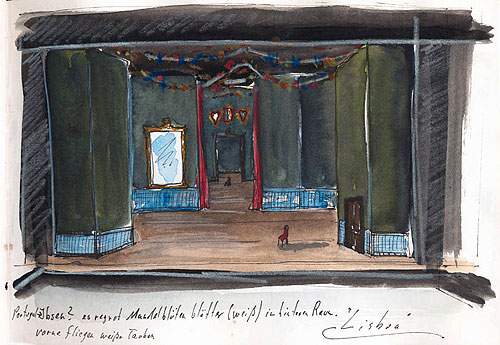 Portugal Ibsen? es regnet Mandelblüten blätter (weiß) im hinteren Raum. "Lisboa"
vorne fliegen weiße Tauben